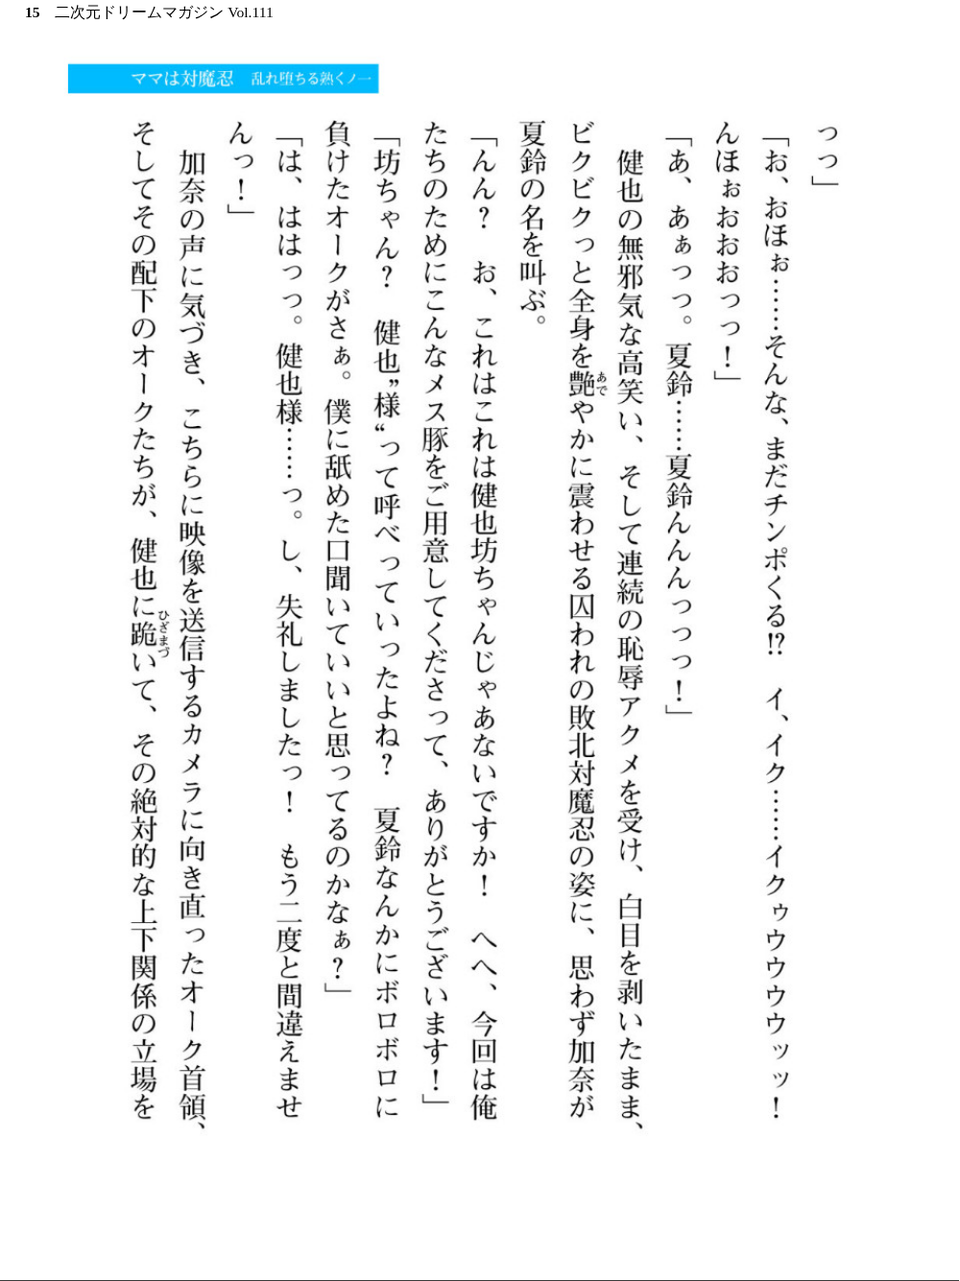 15 二次元ドリームマガジン Vol.111
ママは対魔忍 乱れ堕ちる熟くノ一
っっ」
「お、おほぉ……そんな、まだチンポくる!? イ、イク……イクゥウウウウッッ!
んほぉおおおっっ!」
「あ、あぁっっ。夏鈴……夏鈴んんんっっっ!」
健也の無邪気な高笑い、そして連続の恥辱アクメを受け、白目を剥いたまま、
ビクビクっと全身を艶やかに震わせる囚われの敗北対魔忍の姿に、思わず加奈が
夏鈴の名を叫ぶ。
「んん? お、これはこれは健也坊ちゃんじゃあないですか! へへ、今回は俺
たちのためにこんなメス豚をご用意してくださって、ありがとうございます!」
「坊ちゃん? 健也〝様〟って呼べっていったよね? 夏鈴なんかにボロボロに
負けたオークがさぁ。僕に舐めた口聞いていいと思ってるのかなぁ?」
「は、ははっっ。健也様……っ。し、失礼しましたっ! もう二度と間違えませ
んっ!」
加奈の声に気づき、こちらに映像を送信するカメラに向き直ったオーク首領、
そしてその配下のオークたちが、健也に跪いて、その絶対的な上下関係の立場を